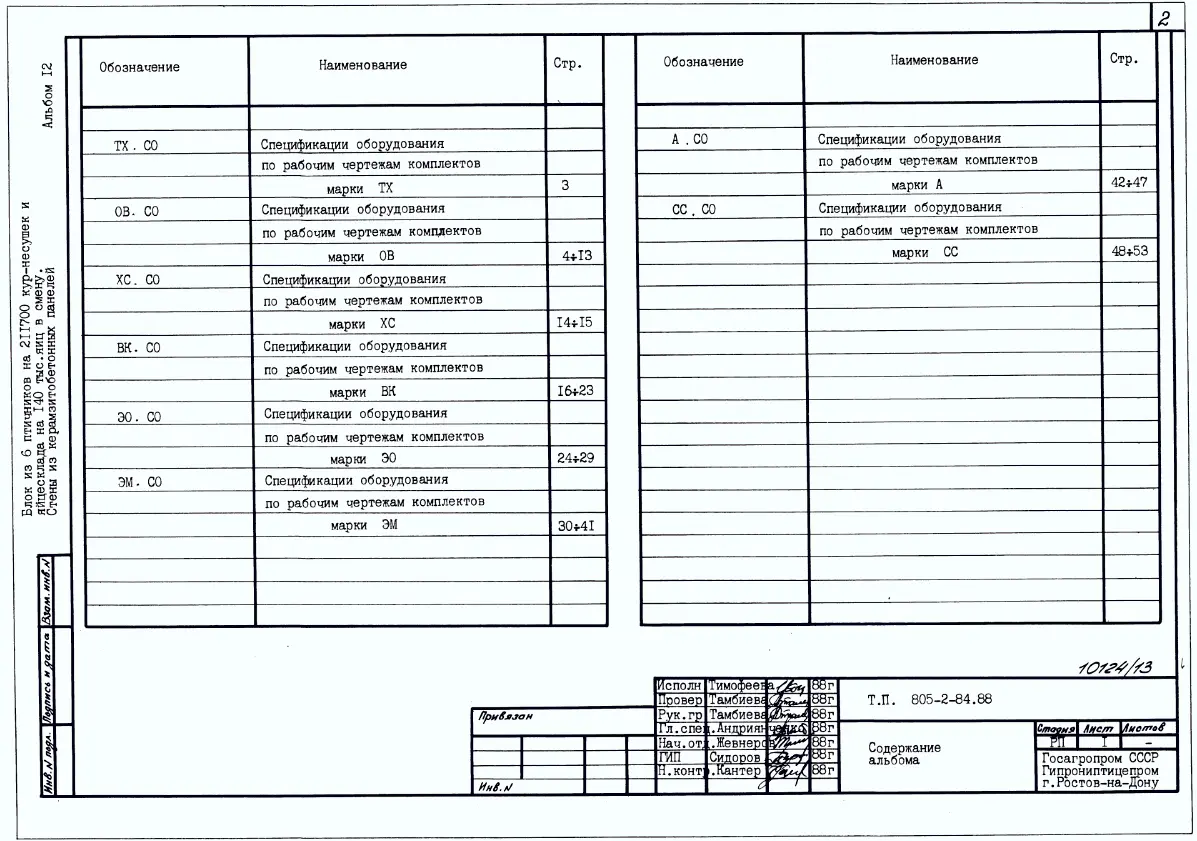 2
Альбом I2
Блок из 6 птичников на 2II700 кур-несушек и
яйцесклада на I40 тыс.яиц в смену.
Стены из керамзитобетонных панелей
Обозначение Наименование Стр.
ТХ. СО Спецификации оборудования
по рабочим чертежам комплектов
марки ТХ 3
ОВ. СО Спецификации оборудования
по рабочим чертежам комплектов
марки ОВ 4÷I3
ХС. СО Спецификации оборудования
по рабочим чертежам комплектов
марки ХС I4÷I5
ВК. СО Спецификации оборудования
по рабочим чертежам комплектов
марки ВК I6÷23
ЭО. СО Спецификации оборудования
по рабочим чертежам комплектов
марки ЭО 24÷29
ЭМ. СО Спецификации оборудования
по рабочим чертежам комплектов
марки ЭМ 30÷4I
Обозначение Наименование Стр.
А . СО Спецификации оборудования
по рабочим чертежам комплектов
марки А 42÷47
СС . СО Спецификации оборудования
по рабочим чертежам комплектов
марки СС 48÷53
Взам. инв. N
Подпись и дата
Инв. N подл.
10124/13
Привязан
Инв. N
Исполн Тимофеева 88г
Провер Тамбиева 88г
Рук.гр Тамбиева 88г
Гл.спец.Андриянченко 88г
Нач.отд.Жевнеров 88г
ГИП Сидоров 88г
Н.контр.Кантер 88г
Т.П. 805-2-84.88
Содержание
альбома
Стадия Лист Листов
РП I -
Госагропром СССР
Гипрониптицепром
г.Ростов-на-Дону